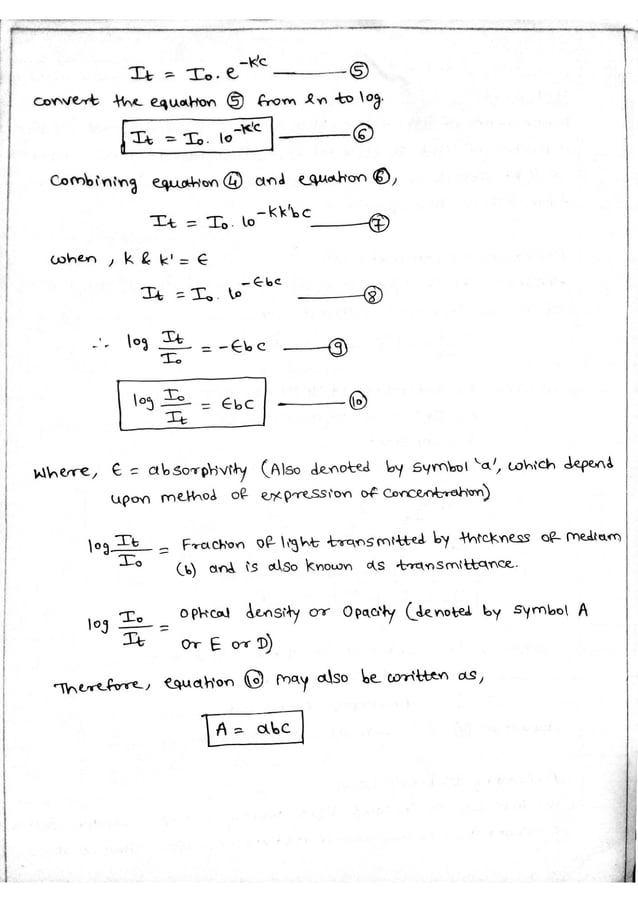 It = Io. e^-K'c ——— ⑤
convert the equation ⑤ from ln to log.
It = Io. 10^-K'c ——— ⑥
Combining equation ④ and equation ⑥,
It = Io. 10^-KK'bc ——— ⑦
when, k & k' = ϵ
It = Io. 10^-ϵbc ——— ⑧
∴ log It/Io = -ϵbc ——— ⑨
log Io/It = ϵbc ——— ⑩
Where, ϵ = absorptivity (Also denoted by symbol 'a', which depend
upon method of expression of concentration)
log It/Io = Fraction of light transmitted by thickness of medium
(b) and is also known as transmittance.
log Io/It = Optical density or Opacity (denoted by symbol A
or E or D)
Therefore, equation ⑩ may also be written as,
A = abc